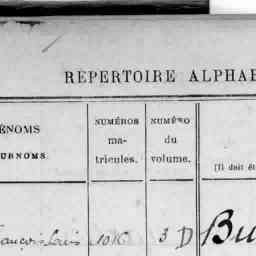 RÉPERTOIRE ALPHAB
ÉNOMS
URNOMS.
NUMÉROS
ma-
tricules.
NUMÉRO
du
volume.
(Il doit êt
François Louis 1016 3 D Bu